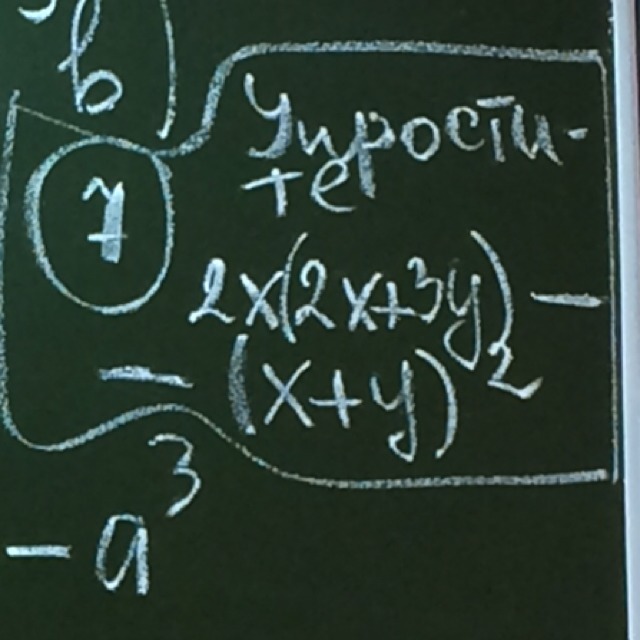 b
7
Упрости-
те
2x(2x+3y) -
- (x+y)²
- a³